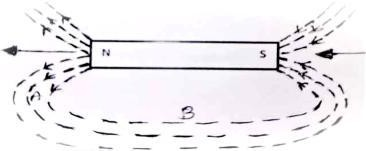 N S
B